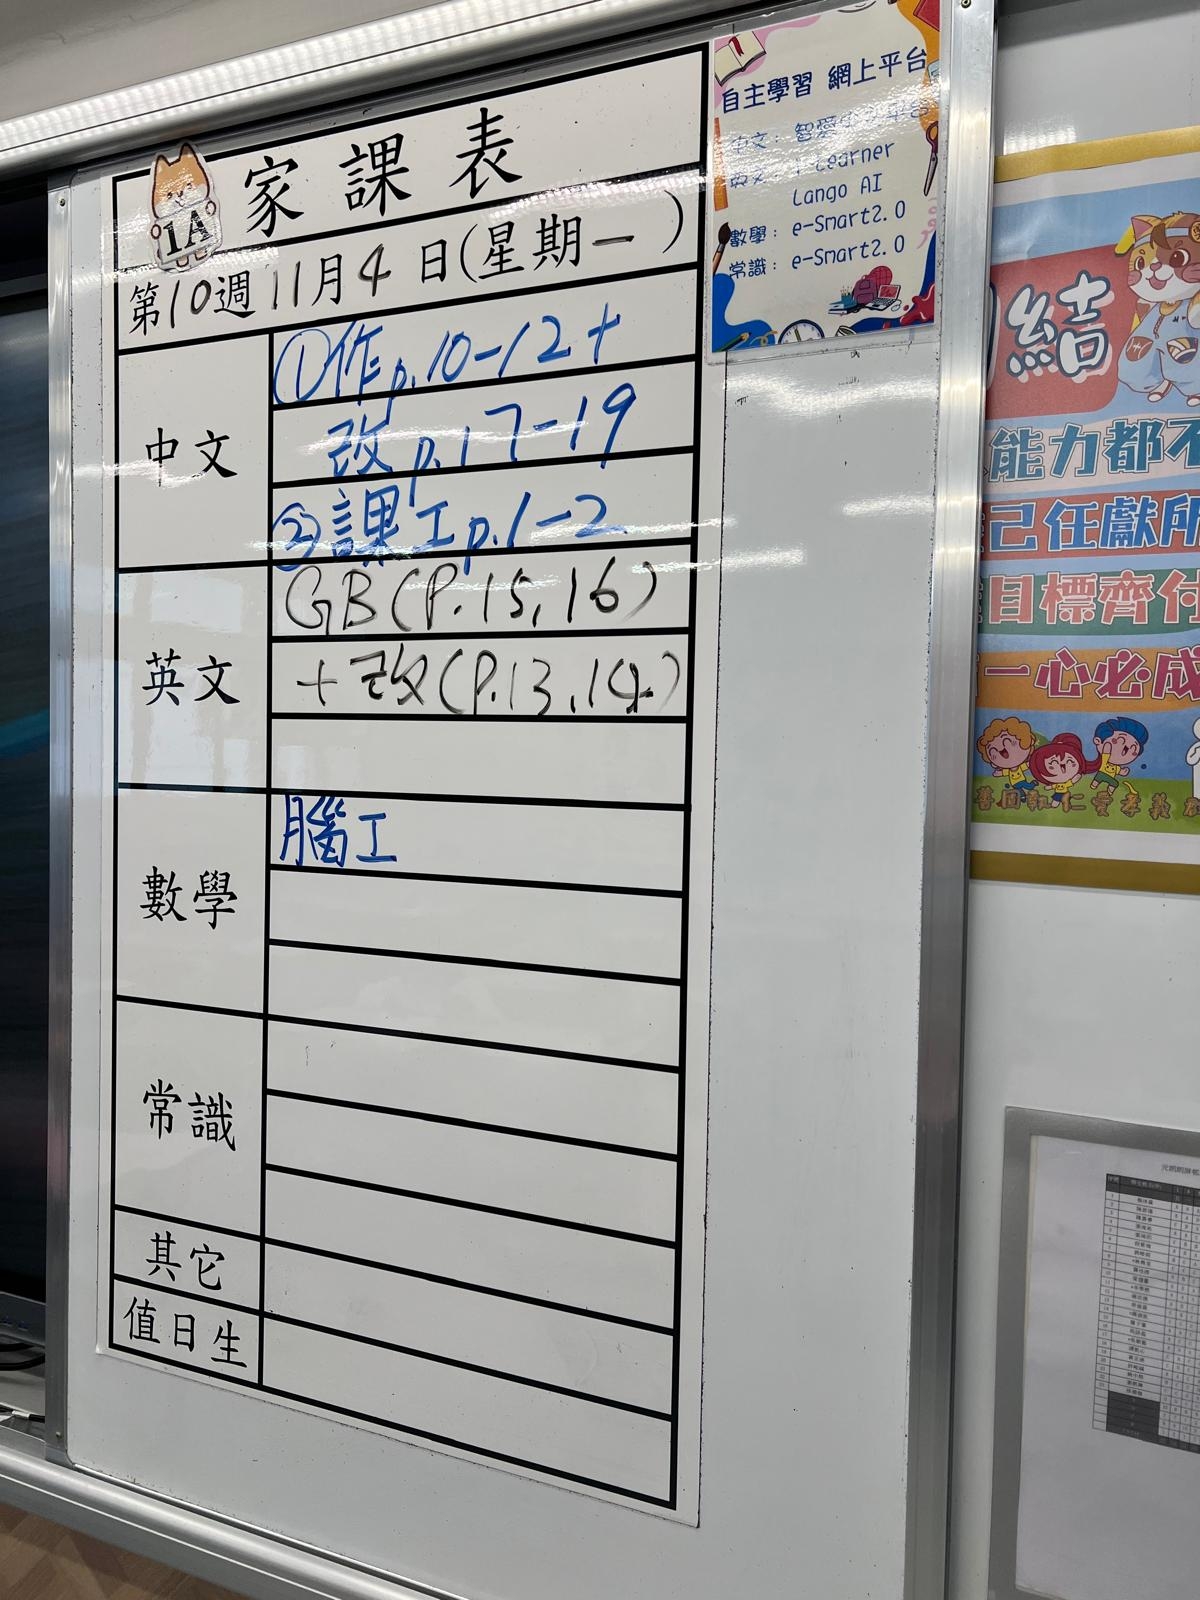 家課表
1A
第10週11月4日(星期一)
中文
①作p.10-12+
改p.17-19
②課工p.1-2
英文
GB(P.15,16)
+改(P.13,14)
數學
腦工
常識
其它
值日生
自主學習 網上平台
中文：智愛中文平台
英文：i-Learner
Lango AI
數學：e-Smart2.0
常識：e-Smart2.0
結
能力都不
己任獻所
目標齊付
一心必成
仁愛孝義